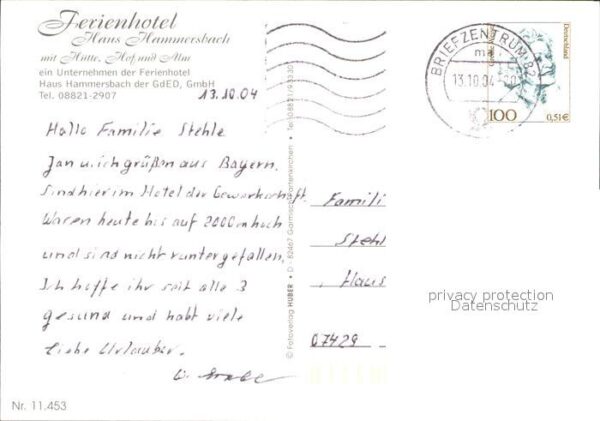 Ferienhotel
Haus Hammersbach
mit Hütte, Hof und Alm
ein Unternehmen der Ferienhotel
Haus Hammersbach der GdED, GmbH
Tel. 08821-2907
13.10.04
Hallo Familie Stehle
Jan u. ich grüßen aus Bayern.
Sind hier im Hotel der Gewerkschaft.
Waren heute bis auf 2000m hoch
und sind nicht runtergefallen.
Ich hoffe ihr seit alle 3
gesund und habt viele
liebe Urlauber.
Nr. 11.453
© Fotoverlag HUBER • D - 82467 Garmisch-Partenkirchen • Tel. 08821/9
BRIEFZENTRUM 82
13.10.04
Deutschland
100
0,51€
Famili
Stehl
Haus
07429
privacy protection
Datenschutz